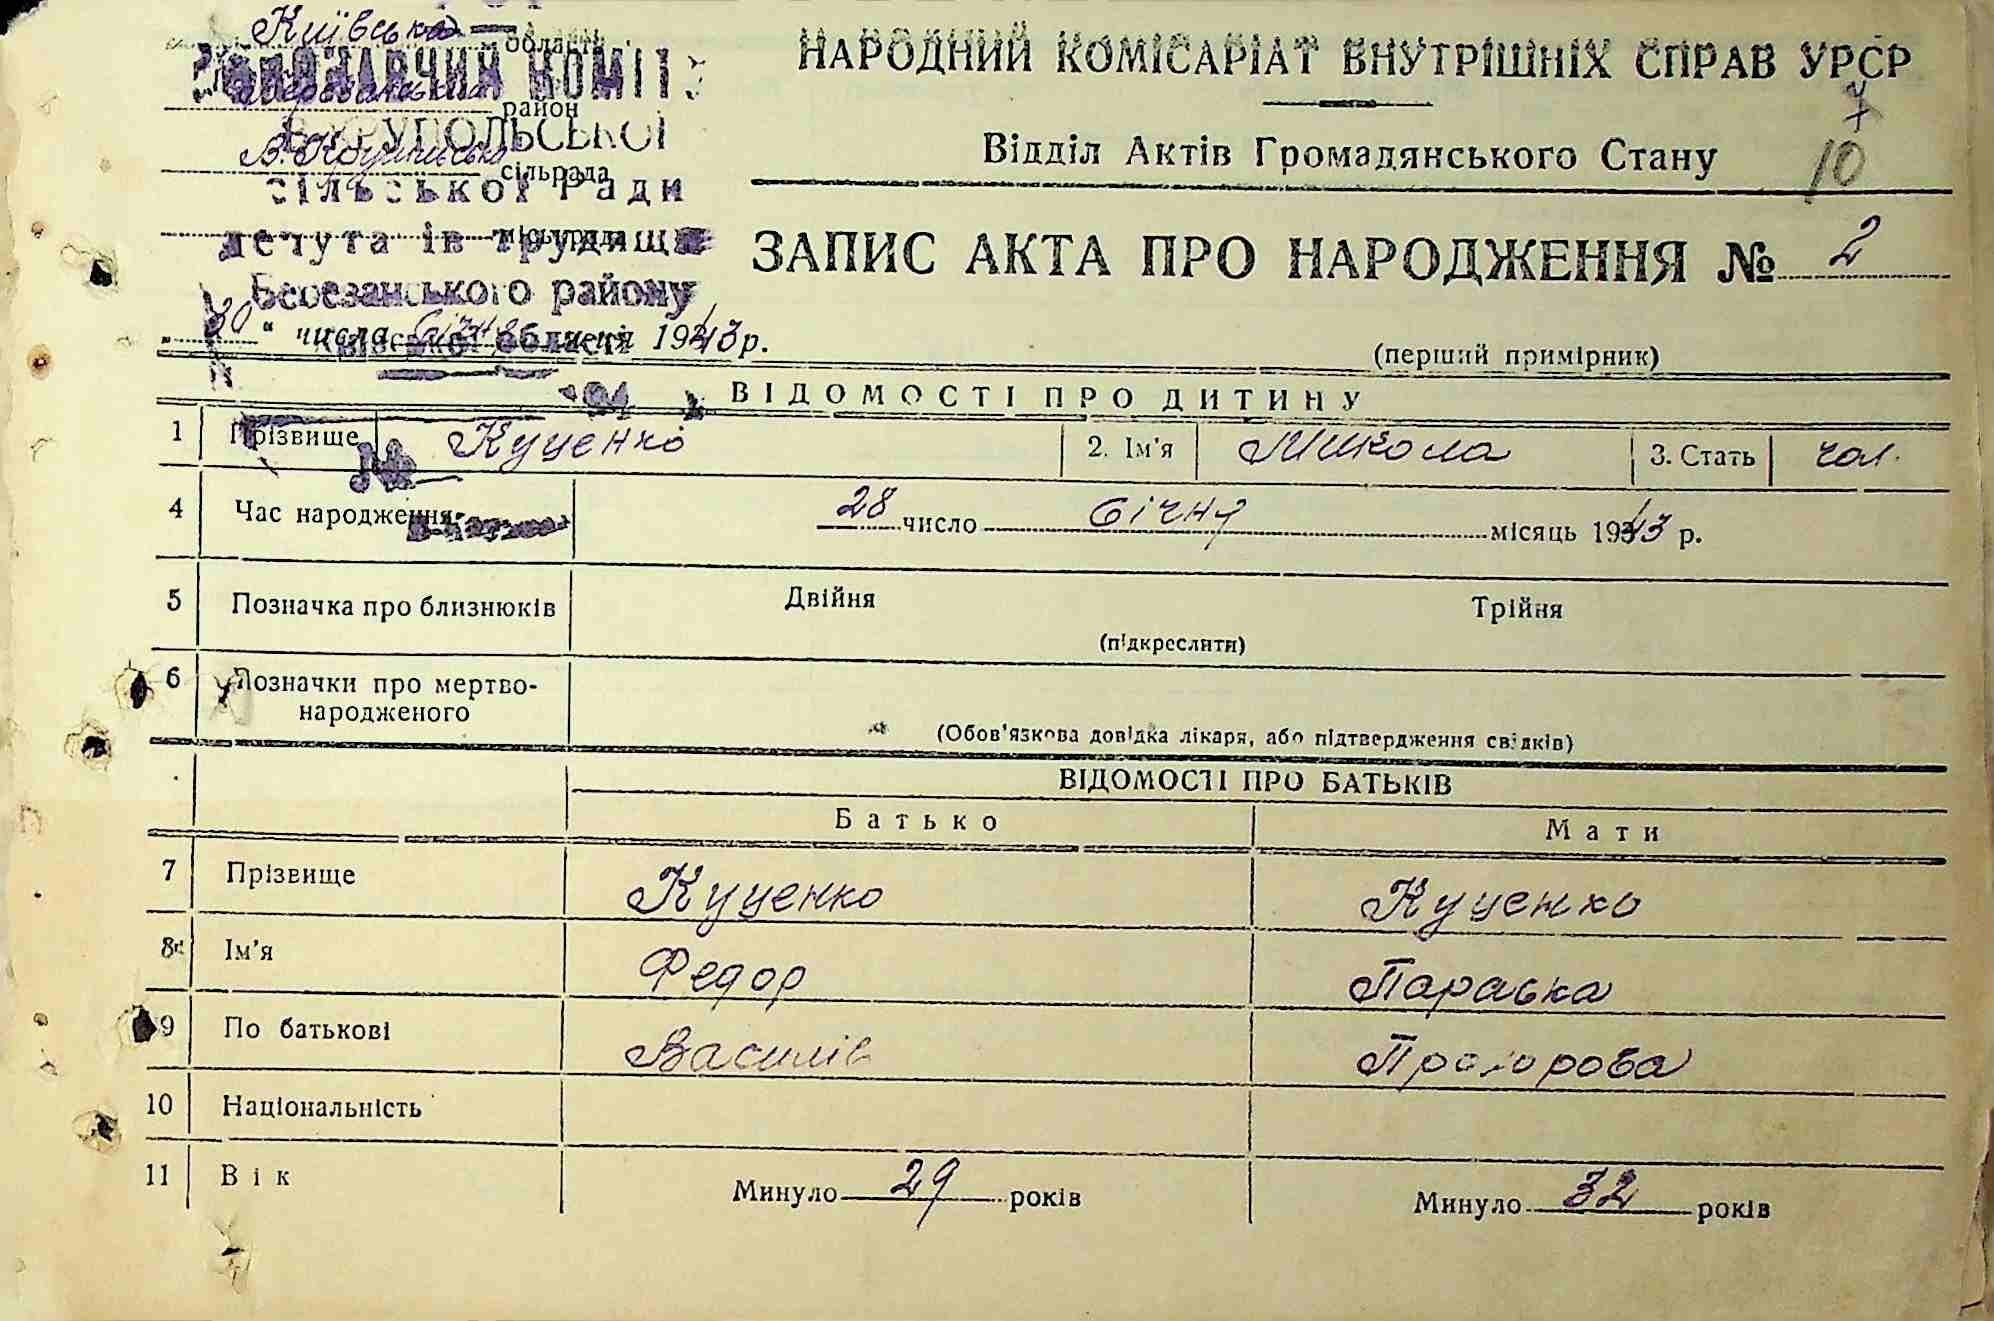 Київська область
НАРОДНИЙ КОМІСАРІАТ ВНУТРІШНІХ СПРАВ УРСР
район
7
Відділ Актів Громадянського Стану
10
сільрада
сільської Ради
ЗАПИС АКТА ПРО НАРОДЖЕННЯ № 2
Березанського району
„30“ числа січня місяця 1943 р.
області
(перший примірник)
ВІДОМОСТІ ПРО ДИТИНУ
1 Прізвище Куценко 2. Ім'я Микола 3. Стать чол.
№
4 Час народження 28 число січня місяць 1943 р.
5 Позначка про близнюків Двійня Трійня
(підкреслити)
6 Позначки про мертво-
народженого
(Обов'язкова довідка лікаря, або підтвердження свідків)
ВІДОМОСТІ ПРО БАТЬКІВ
Батько Мати
7 Прізвище Куценко Куценко
8 Ім'я Федор Параска
9 По батькові Василів Прохорова
10 Національність
11 Вік Минуло 29 років Минуло 32 років